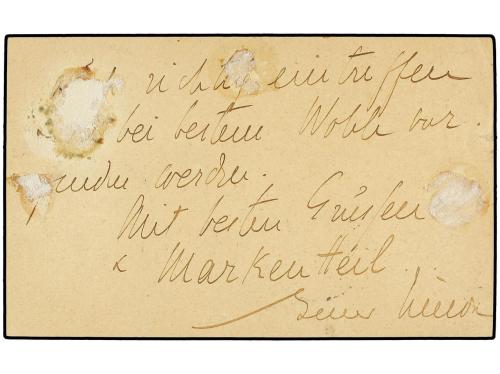 richtig eintreffen
bei bestem Wohle vor.
werden.
Mit besten Grüßen
& Markenheil